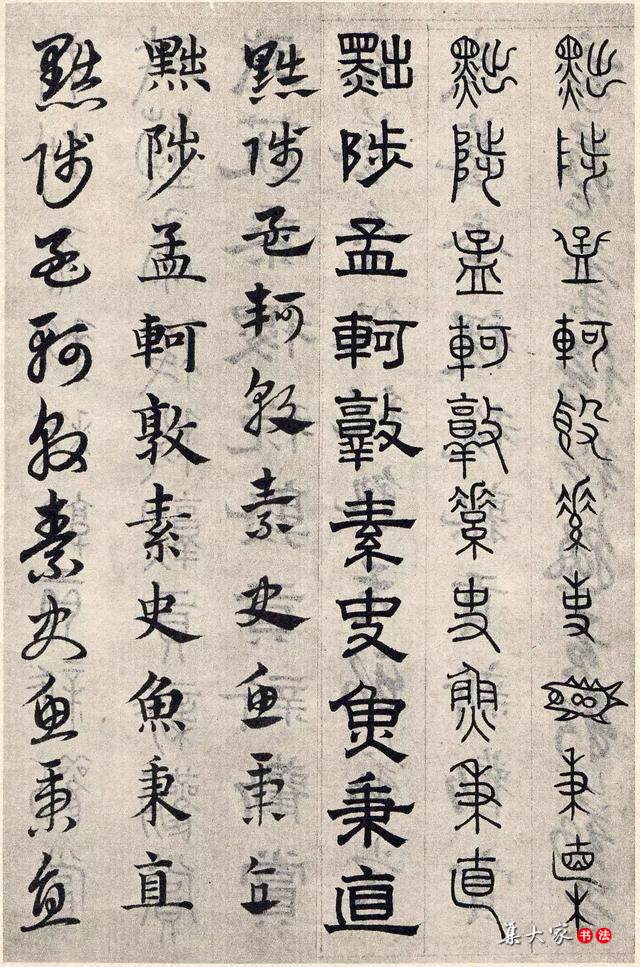 黜陟孟軻敦素史魚秉直
黜陟孟軻敦素史魚秉直
黜陟孟軻敦素史魚秉直
黜陟孟軻敦素史魚秉直
黜陟孟軻敦素史魚秉直
黜陟孟軻敦素史魚秉直
集大家书法